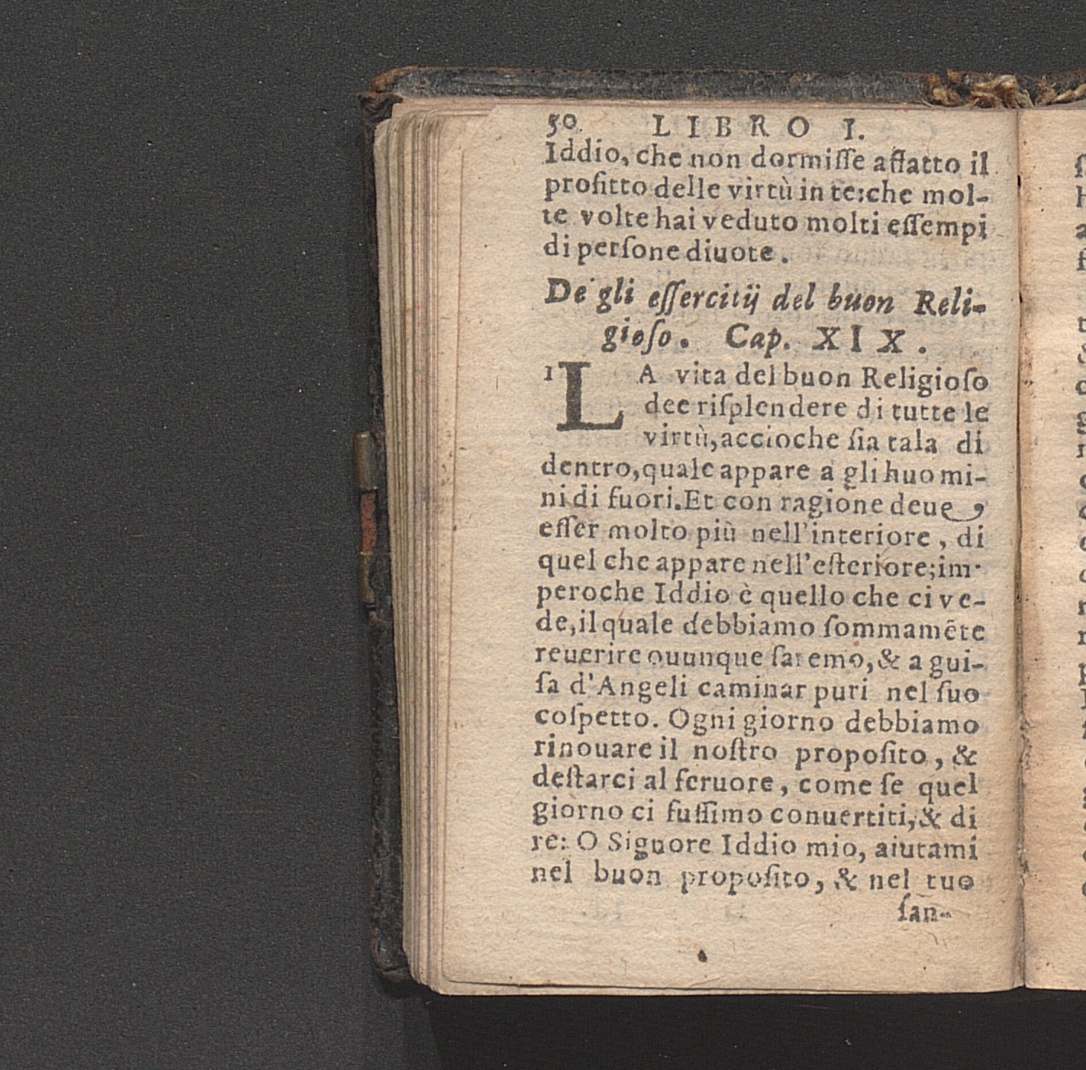 50 LIBRO I.
Iddio, che non dormiſſe affatto il
profitto delle virtù in te: che mol-
te volte hai veduto molti eſſempi
di perſone diuote.
De gli eſſercitij del buon Reli-
gioſo. Cap. XIX.
1 LA vita del buon Religioſo
dee riſplendere di tutte le
virtù, accioche ſia tala di
dentro, quale appare a gli huomi-
ni di fuori. Et con ragione deue
eſſer molto più nell'interiore, di
quel che appare nell'eſteriore; im-
peroche Iddio è quello che ci ve-
de, il quale debbiamo ſommamẽte
reuerire ouunque ſaremo, & a gui-
ſa d'Angeli caminar puri nel ſuo
coſpetto. Ogni giorno debbiamo
rinouare il noſtro propoſito, &
deſtarci al feruore, come ſe quel
giorno ci fuſſimo conuertiti, & di
re: O Signore Iddio mio, aiutami
nel buon propoſito, & nel tuo
ſan-